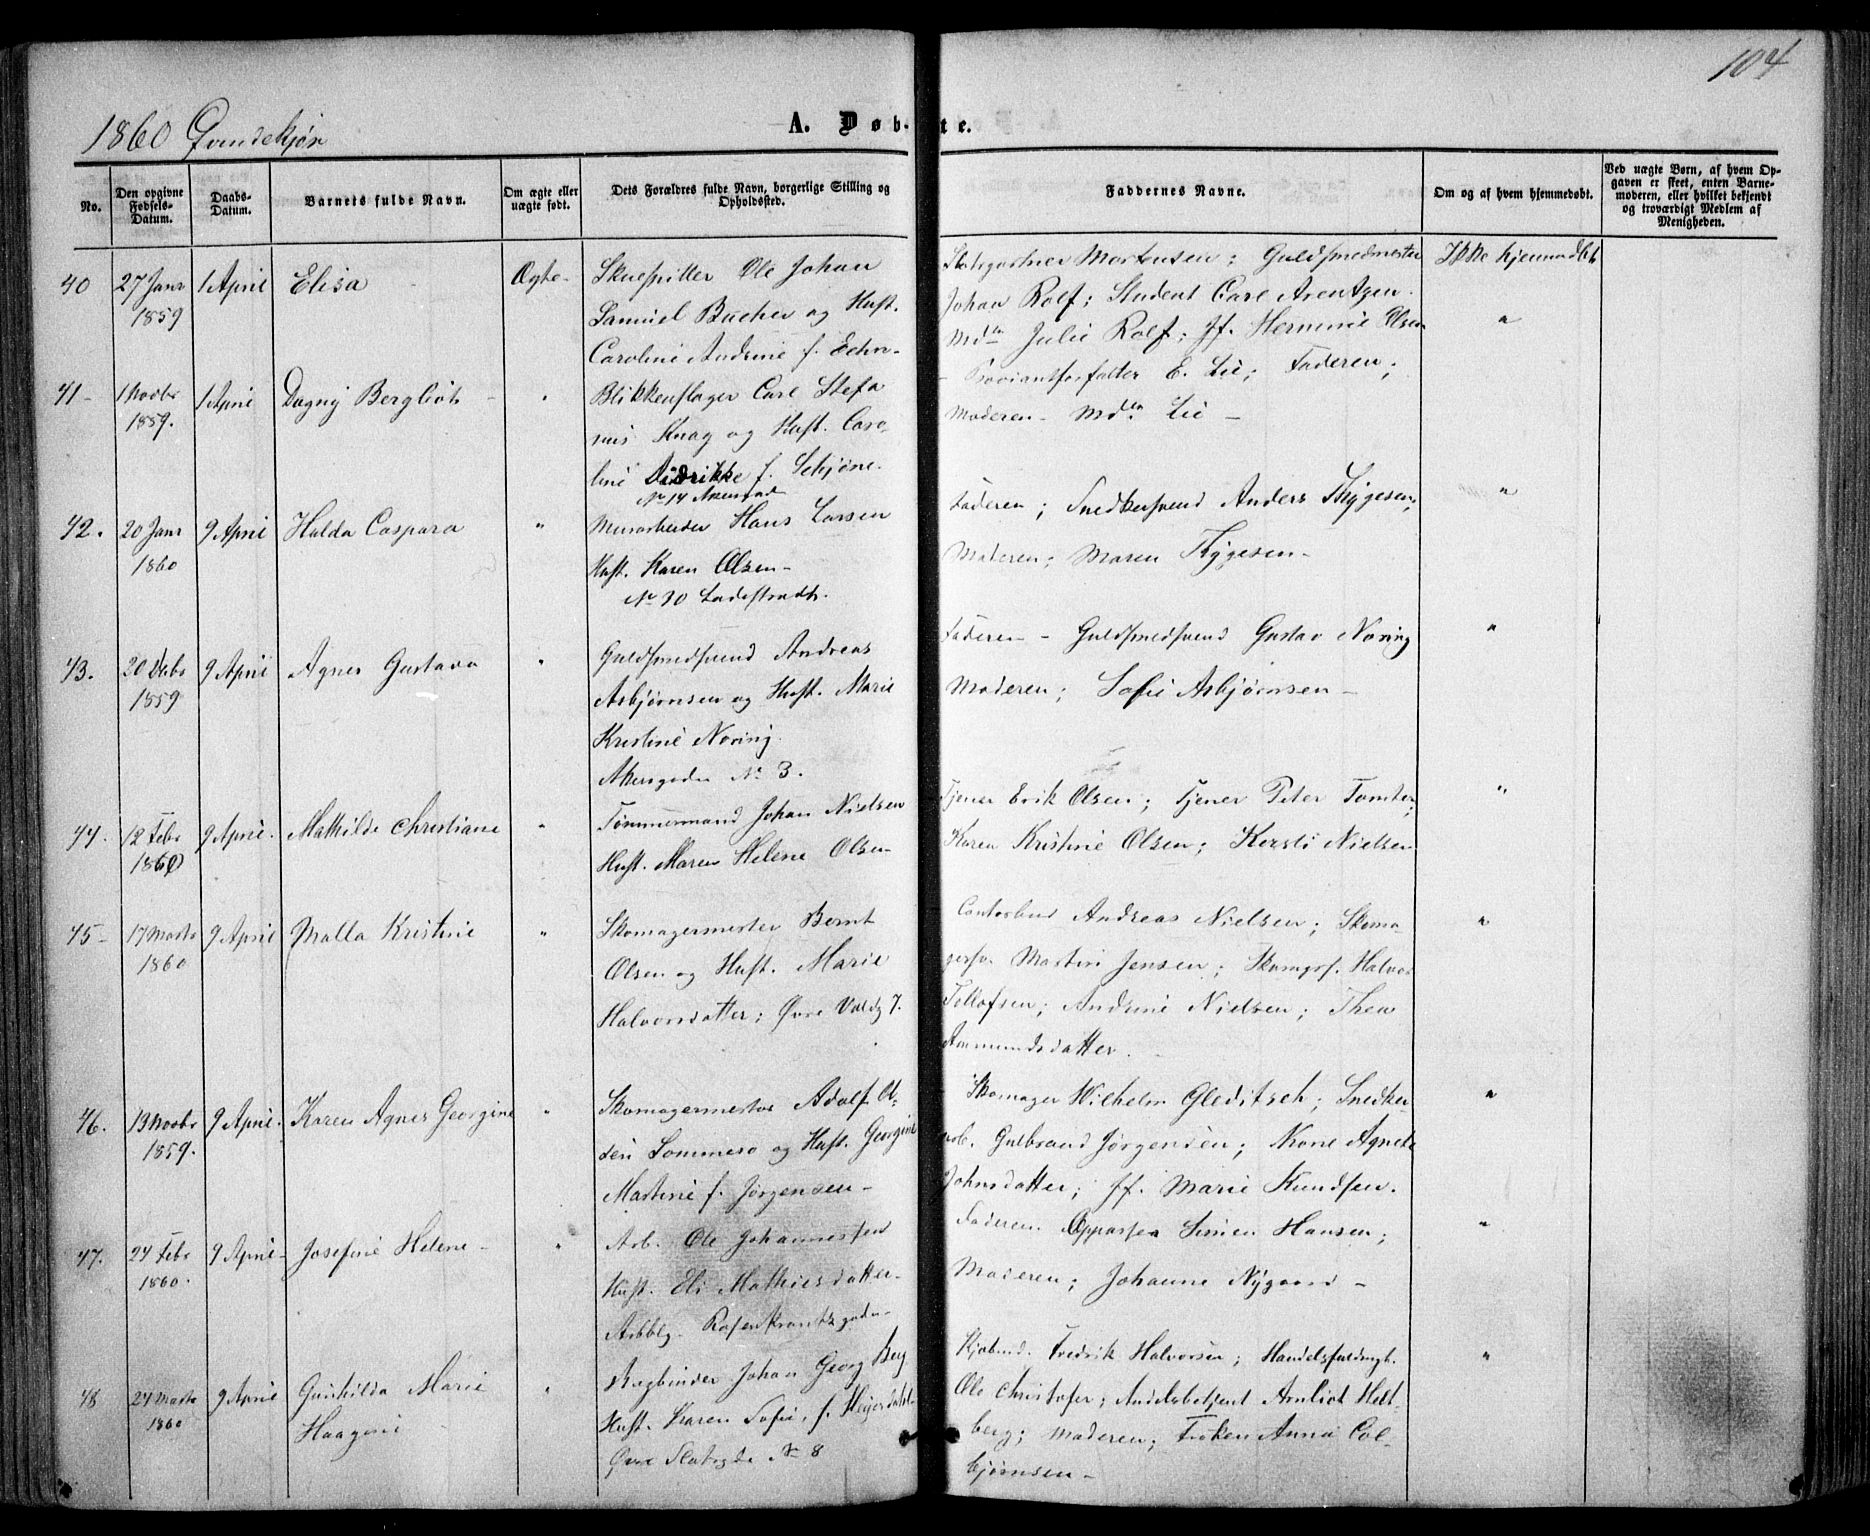 104
1860 Qvindekjøn
A. Døb-te.
No.
Den opgivne Fødsels-Datum.
Daabs-Datum.
Barnets fulde Navn.
Om ægte eller uægte født.
Dets Forældres fulde Navn, borgerlige Stilling og Opholdssted.
Faddernes Navne.
Om og af hvem hjemmedøbt.
Ved uægte Børn, af hvem Opgaven er skeet, enten Barnemoderen, eller hvilket bekjendt og troværdigt Medlem af Menigheden.
40 27 Janr 1859 1 April Elisa Ægte-
Skuespiller Ole Johan
Samuel Bucher og Hust.
Caroline Andrine f.
Slotsgartner Mortensen; Guldsmedmester
Johan Rolf; Student Carl Arentzen.
Mdm Julie Rolf; Jf. Hermine Olsen
Ikke hjemmedøbt
"
41- 1 Novbr 1859. 1 April Dagny Bergliot - "
Blikkenslager Carl Stefa
nus Knag og Hust. Caro-
line Didrikke f. Schjøne.
No 14
- Proviantforvalter E. Lie; Faderen;
Moderen- Mdm Lie -
42. 20 Janr 1860 9 April Halda Caspara "
Murarbeider Hans Larsen
Hust. Karen Olsen-
No 20
Faderen; Snedkersvend Anders Thygesen;
Moderen; Maren Thygesen-
"
43. 20 Debr 1859 9 April Agnes Gustava "
Guldsmedsvend Andreas
Asbjørnsen og Hust. Marie
Kristine Noring.
Akersgaden No 3.
Faderen - Guldsmedsvend Gustav Noring
Moderen; Sofie Asbjørnsen-
"
44. 12 Febr 1860 9 April. Mathilde Christiane "
Tømmermand Johan Nielsen
Hust. Maren Helene Olsen
Tjener Erik Olsen; Tjener Peter Tomter;
Karen Kristine Olsen; Kersti Nielsen
"
45- 17 Marts 1860 9 April Malla Kristine "
Skomagermester Bernt
Olsen og Hust. Marie
Halvorsdatter; Øvre Voldg 7.
Contorbud Andreas Nielsen; Skoma-
gersv. Martin Jensen; Skomgrs. Halvor
Tellofsen; Andrine Nielsen; Thea
Aamundsdatter.
"
46. 13 Novbr 1859. 9 April. Karen Agnes Georgine "
Skomagermester Adolf Ol-
sen Sommero og Hust. Georgine
Martine f. Jørgensen-
Skomager Wilhelm Gleditsch; Snedker
arb. Gulbrand Jørgensen; Kone Agnete
Johnsdatter; Jf. Marie Knudsen.
"
47. 24 Febr 1860. 9 April- Josefine Helene- "
Arb. Ole Johannessen
Hust. Eli Mathiesdatter-
Arbblg. Rosenkrantzgaden-
Faderen Simen Hansen;
Moderen; Johanne Nygaard -
"
48 24 Marts 1860 9 April Gunhilda Marie
Haagine "
Bogbinder Johan Georg Berg
Hust. Karen Sofie, f.
Øvre Slotsgde No 8
Kjøbmd. Fredrik Halvorsen; Handelsfuldmgt.
Ole Christofer; Andelsbetjent Arnliot Helt-
berg; Moderen; Frøken Anna Col-
bjørnsen-
"